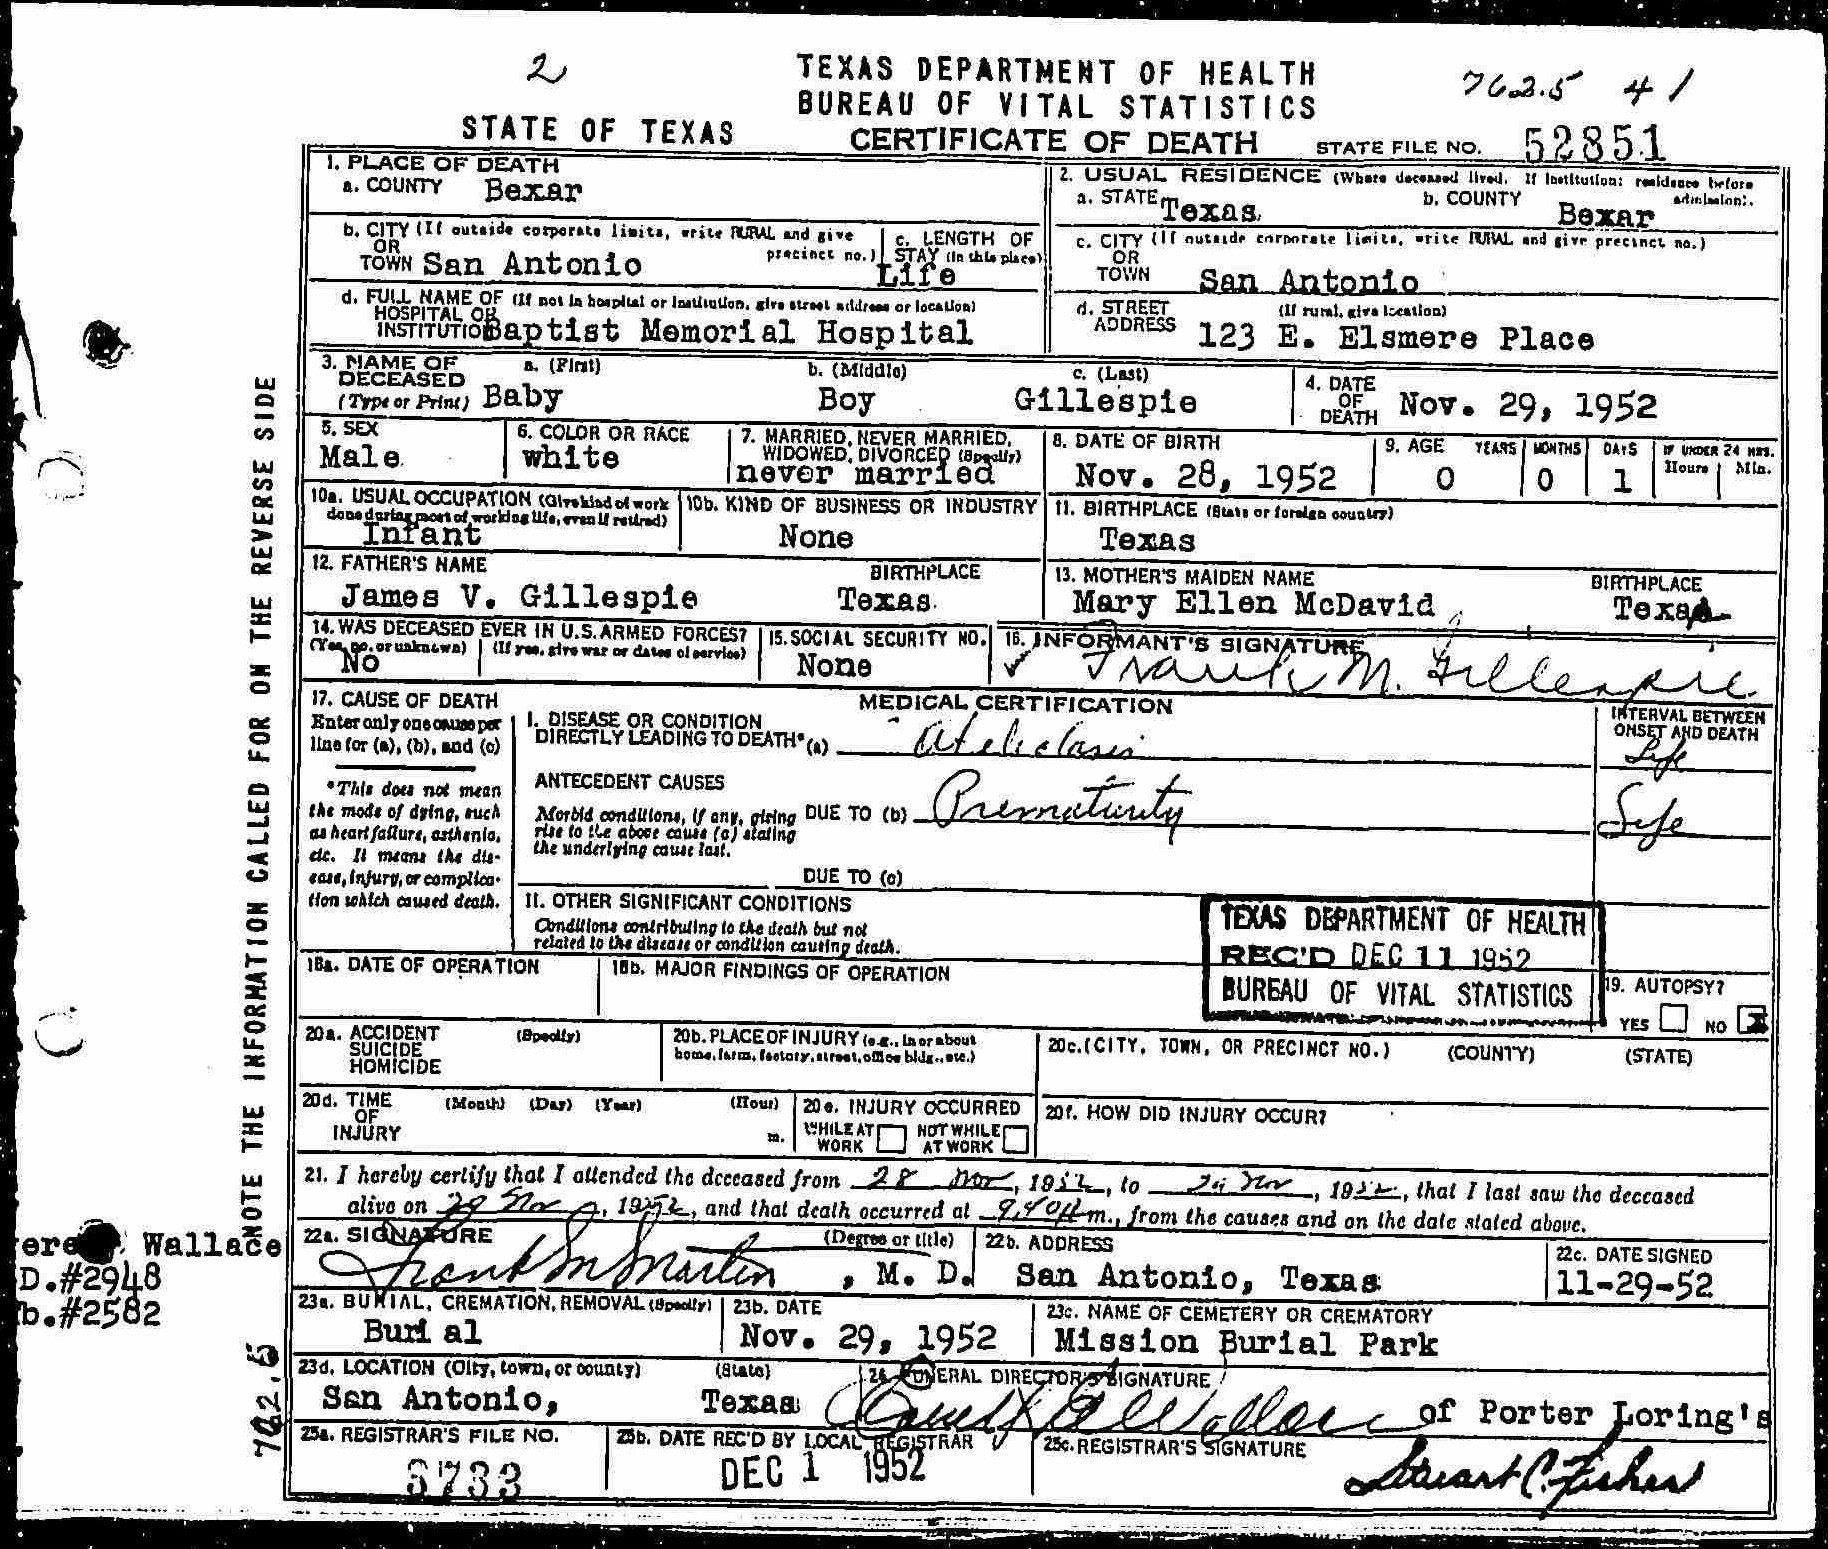 2
TEXAS DEPARTMENT OF HEALTH
BUREAU OF VITAL STATISTICS
7625 41
STATE OF TEXAS
CERTIFICATE OF DEATH
STATE FILE NO. 52851
1. PLACE OF DEATH
a. COUNTY Bexar
2. USUAL RESIDENCE (Where deceased lived. If institution: residence before admission).
a. STATE Texas b. COUNTY Bexar
b. CITY (If outside corporate limits, write RURAL and give precinct no.)
OR
TOWN San Antonio
c. LENGTH OF
STAY (in this place)
Life
c. CITY (If outside corporate limits, write RURAL and give precinct no.)
OR
TOWN San Antonio
d. FULL NAME OF (If not in hospital or institution, give street address or location)
HOSPITAL OR
INSTITUTION Baptist Memorial Hospital
d. STREET (If rural, give location)
ADDRESS 123 E. Elsmere Place
3. NAME OF DECEASED (Type or Print)
a. (First) Baby
b. (Middle) Boy
c. (Last) Gillespie
4. DATE OF DEATH Nov. 29, 1952
5. SEX
Male
6. COLOR OR RACE
white
7. MARRIED, NEVER MARRIED,
WIDOWED, DIVORCED (Specify)
never married
8. DATE OF BIRTH
Nov. 28, 1952
9. AGE YEARS MONTHS DAYS IF UNDER 24 HRS.
Hours Min.
0 0 1
10a. USUAL OCCUPATION (Give kind of work
done during most of working life, even if retired)
Infant
10b. KIND OF BUSINESS OR INDUSTRY
None
11. BIRTHPLACE (State or foreign country)
Texas
12. FATHER'S NAME BIRTHPLACE
James V. Gillespie Texas
13. MOTHER'S MAIDEN NAME BIRTHPLACE
Mary Ellen McDavid Texas
14. WAS DECEASED EVER IN U.S. ARMED FORCES?
(Yes, no, or unknown) (If yes, give war or dates of service)
No
15. SOCIAL SECURITY NO.
None
16. INFORMANT'S SIGNATURE
Frank M. Gillespie
17. CAUSE OF DEATH
Enter only one cause per
line for (a), (b), and (c)
*This does not mean
the mode of dying, such
as heart failure, asthenia,
etc. It means the dis-
ease, injury, or complica-
tion which caused death.
MEDICAL CERTIFICATION
INTERVAL BETWEEN
ONSET AND DEATH
I. DISEASE OR CONDITION
DIRECTLY LEADING TO DEATH* (a) Ateliclasis Life
ANTECEDENT CAUSES
Morbid conditions, if any, giving
rise to the above cause (a) stating
the underlying cause last.
DUE TO (b) Prematurity Life
DUE TO (c)
II. OTHER SIGNIFICANT CONDITIONS
Conditions contributing to the death but not
related to the disease or condition causing death.
TEXAS DEPARTMENT OF HEALTH
REC'D DEC 11 1952
BUREAU OF VITAL STATISTICS
18a. DATE OF OPERATION
18b. MAJOR FINDINGS OF OPERATION
19. AUTOPSY?
YES NO X
20a. ACCIDENT (Specify)
SUICIDE
HOMICIDE
20b. PLACE OF INJURY (e.g., in or about
home, farm, factory, street, office bldg., etc.)
20c. (CITY, TOWN, OR PRECINCT NO.) (COUNTY) (STATE)
20d. TIME (Month) (Day) (Year) (Hour)
OF
INJURY m.
20e. INJURY OCCURRED
WHILE AT WORK NOT WHILE AT WORK
20f. HOW DID INJURY OCCUR?
21. I hereby certify that I attended the deceased from 28 Nov, 1952, to 29 Nov, 1952, that I last saw the deceased
alive on 29 Nov, 1952, and that death occurred at 9:40A m., from the causes and on the date stated above.
22a. SIGNATURE (Degree or title)
Frank M Martin, M. D.
22b. ADDRESS
San Antonio, Texas
22c. DATE SIGNED
11-29-52
23a. BURIAL, CREMATION, REMOVAL (Specify)
Burial
23b. DATE
Nov. 29, 1952
23c. NAME OF CEMETERY OR CREMATORY
Mission Burial Park
23d. LOCATION (City, town, or county) (State)
San Antonio, Texas
24. FUNERAL DIRECTOR'S SIGNATURE
of Porter Loring's
25a. REGISTRAR'S FILE NO.
3733
25b. DATE REC'D BY LOCAL REGISTRAR
DEC 1 1952
25c. REGISTRAR'S SIGNATURE
Stuart C. Fisher
NOTE THE INFORMATION CALLED FOR ON THE REVERSE SIDE
Wallace
D.#2948
b.#2582
762.5